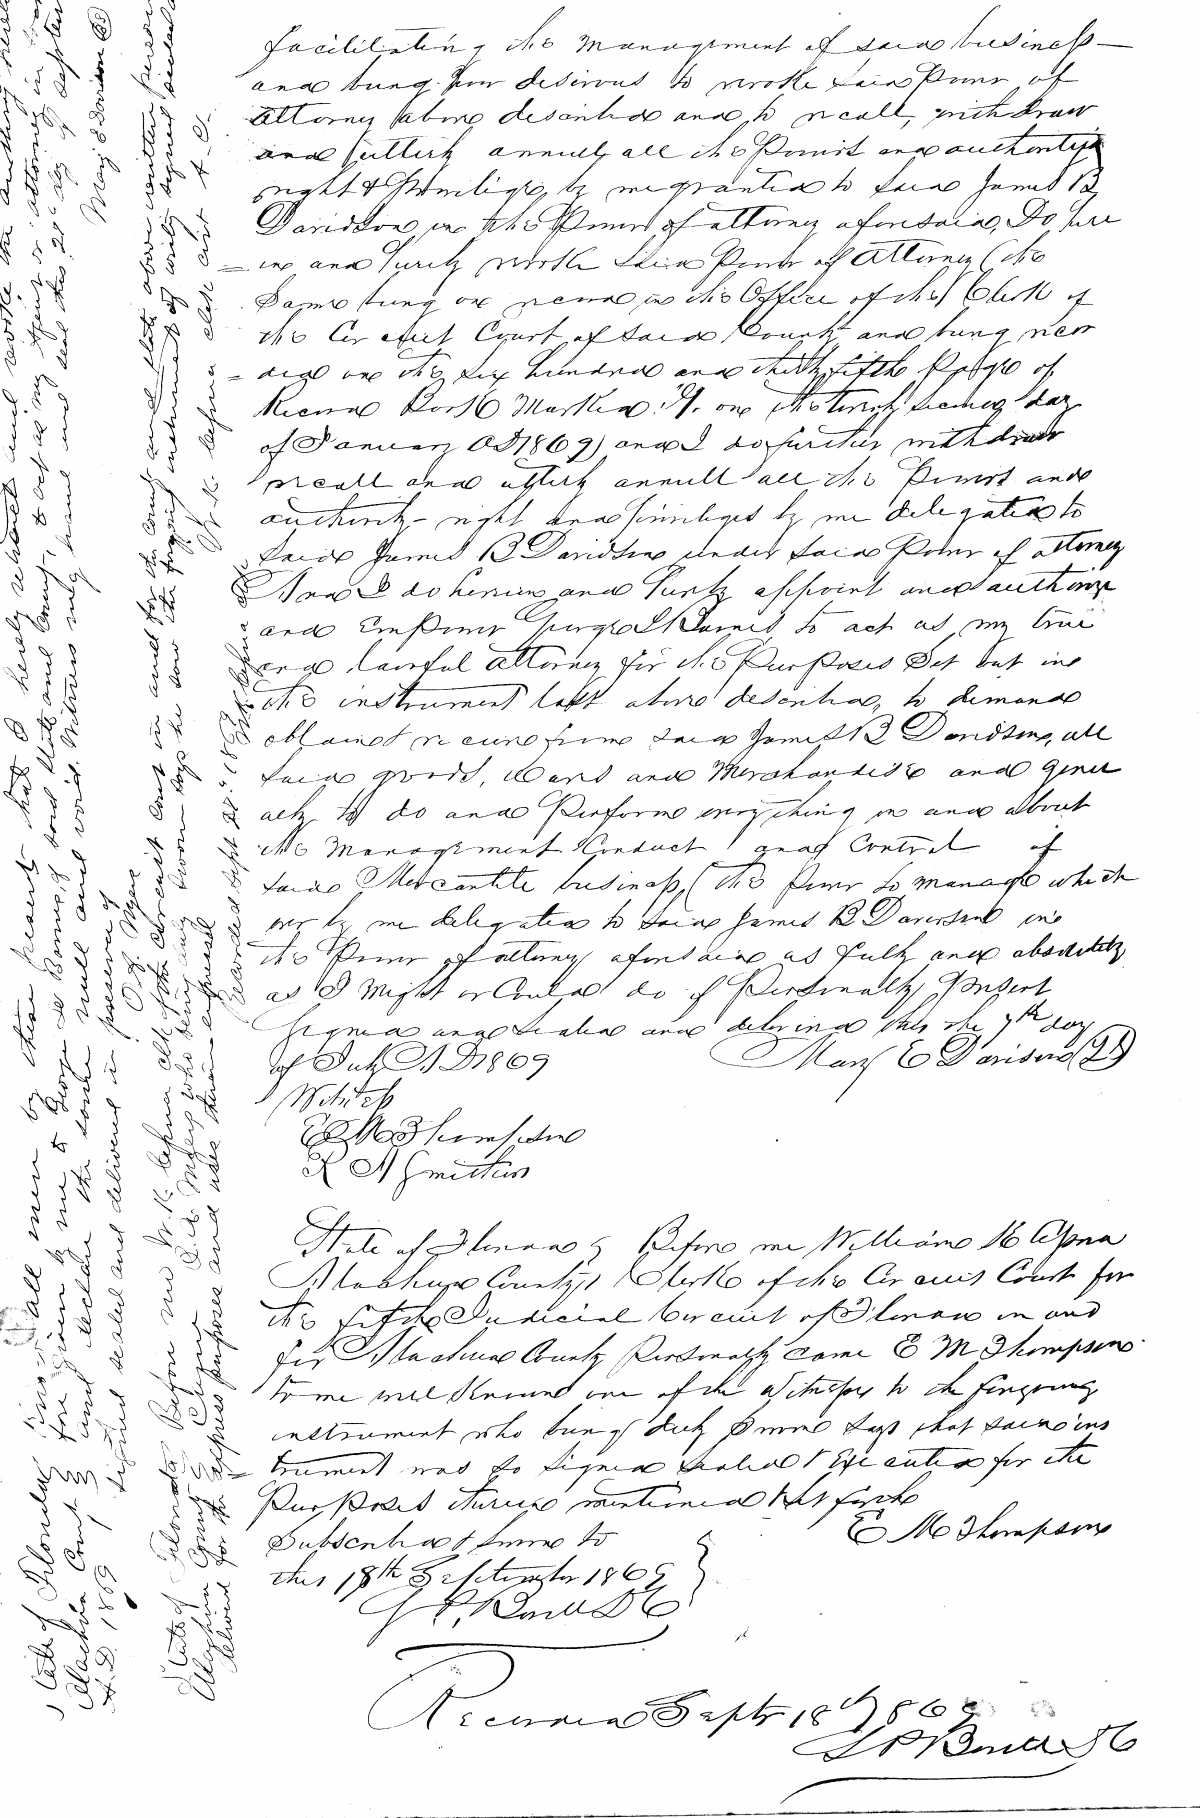 facilitating the management of said business
and being now desirous to revoke said Power of
Attorney above described and to recall, withdraw
and utterly annull, all the Powers and authority
right & Privileges, by me granted to said James B
Davidson in the Power of attorney aforesaid, Do here
= in and hereby revoke said Power of Attorney (the
Same being on record in the Office of the Clerk of
the Circuit Court of said County and being recor
= ded on the six hundred and thirty fifth Page of
Record Book Marked on the twenty second day
of January AD 1869) and I do further withdraw
recall and utterly annull all the Powers and
authority - right and Priviliges by me delegated to
said James B Davidson under said Power of attorney
And I do herein and hereby appoint and authorize
and Empower George L Barnes to act as my true
and lawful attorney for the Purposes Set out in
the instrument last above described, to demand
obtain & receive from said James B Davidson, all
said goods, wares and Merchandise and gener
ally to do and Perform everything in and about
the Management Conduct and Control of
said Mercantile business, (the Power to manage which
were by me delegated to said James B Davidson in
the Power of attorney aforesaid as fully and absolutely
as I might or Could do if Personally Present
Signed and sealed and delivered this the 7th day
of July AD 1869 Mary E Davison (LS)
Witness
E M Thompson
State of Florida } Before me William K Cessna
Alachua County } Clerk of the Circuit Court for
the fifth Judicial Circuit of Florida in and
for Alachua County Personally came E M Thompson
to me well Known one of the Witnesses to the foregoing
instrument who being duly Sworn says that said ins
= trument was so signed sealed & Executed for the
Purposes therein mentioned & set forth
Subscribed & sworn to E M Thompson
this 18th September 1869
Recorded Septr 18th 1869
State of Florida Know all men by these presents that I hereby retract and revoke the authority
Alachua County } for given by me to George L Barnes, of said State and County, to act as my Agent or attorney in
A.D. 1869 and declare the same null and void. Witness my hand and seal this 21st day of September
Signed sealed and delivered in presence of Mary E Davison (LS)
State of Florida } Before me W. K. Cessna Clk of the circuit court in and for the county and State above written personally
Alachua County } who being duly sworn says he saw the foregoing instrument of writing signed sealed &
delivered for the express purposes and uses therein expressed W. K. Cessna clerk circt A. C.
Recorded Sept 21st 1869